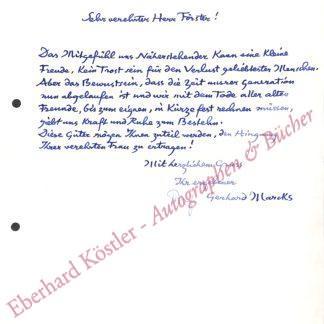 Sehr verehrter Herr Förster!
Das Mitgefühl uns Näherstehender kann eine kleine
Freude, kein Trost sein für den Verlust geliebtester Menschen.
Aber das Bewusstsein, dass die Zeit unsrer Generation
nun abgelaufen ist und wir mit dem Tode aller alten
Freunde, bis zum eignen, in Kürze fest rechnen müssen,
giebt uns Kraft und Ruhe zum Bestehn.
Diese Güter mögen Ihnen zuteil werden, den Hingang
Ihrer verehrten Frau zu ertragen!
Mit herzlichem Gruss
Ihr ergebener
Gerhard Marcks
Eberhard Köstler - Autographen & Bücher